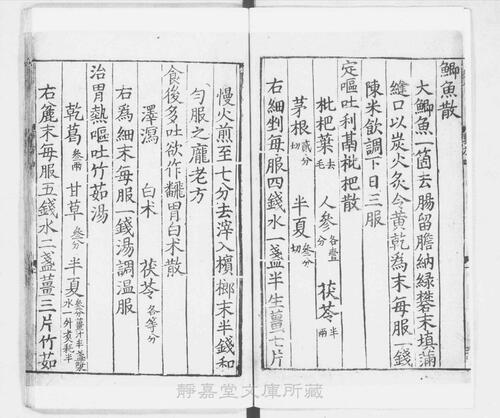 鯽魚散
大鯽魚一箇去腸留膽納緑礬末填滿
縫口以炭火灸令黃乾為末每服一錢
陳米飲調下日三服
定嘔吐利膈枇杷散
枇杷葉去毛 人參各壹分 茯苓半兩
茅根貳分切 半夏叁分切
右細剉每服四錢水一盞半生薑七片
慢火煎至七分去滓入檳榔末半錢和
勻服之龐老方
食後多吐欲作飜胃白朮散
澤瀉 白术 茯苓各等分
右為細末每服一錢湯調溫服
治胃熱嘔吐竹茹湯
乾葛叁兩 甘草叁分 半夏叁分薑汁半盞漿水一升煮耗半
右麄末每服五錢水二盞薑三片竹茹
靜嘉堂文庫所藏